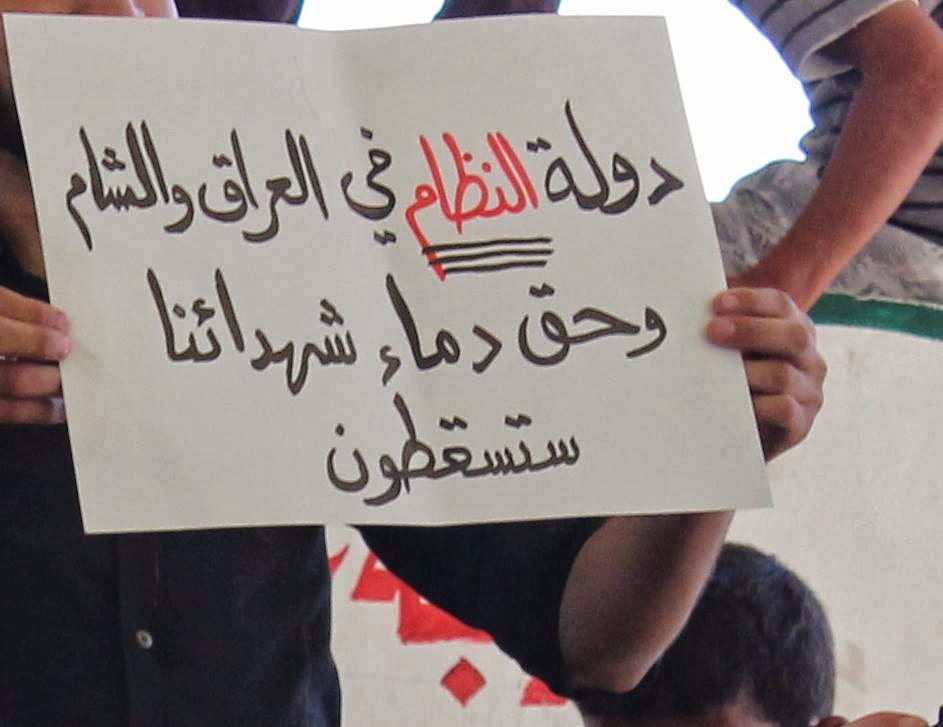 دولة النظام في العراق والشام
وحق دماء شهدائنا
ستسقطون